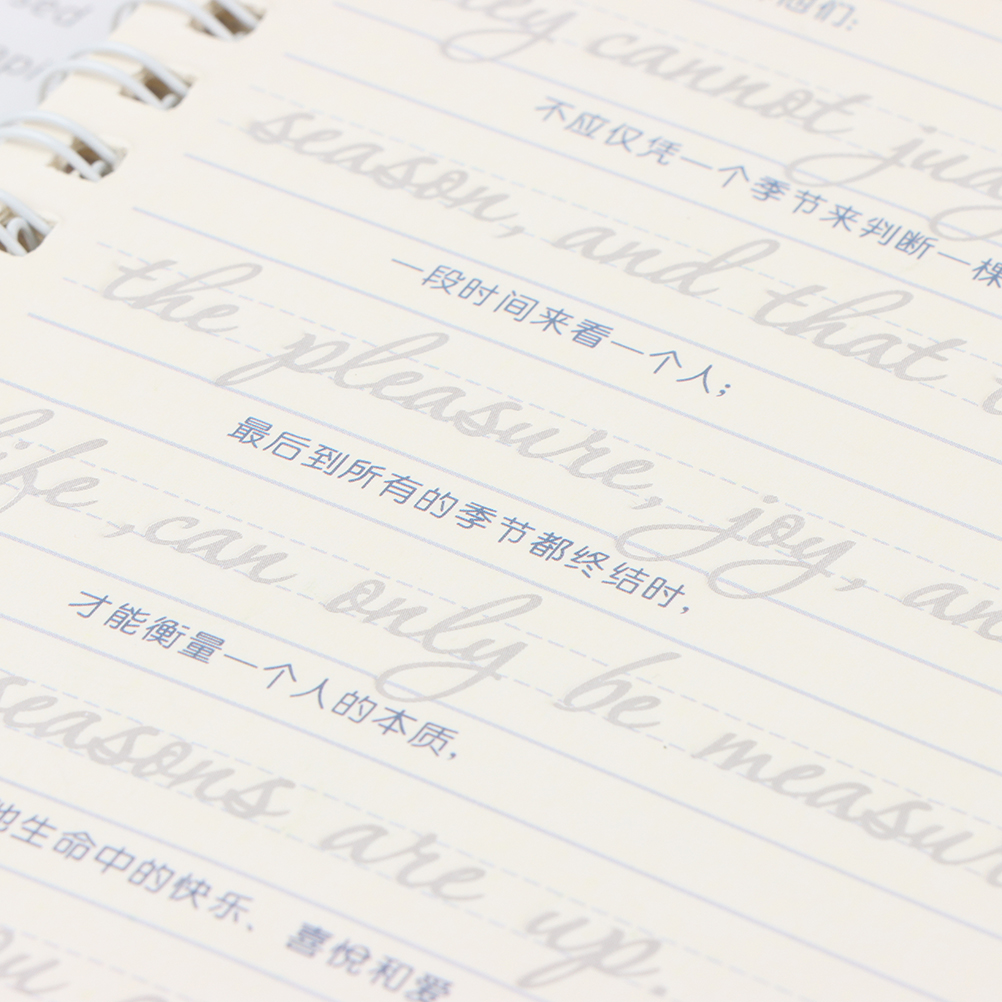 们:
cannot
不应仅凭一个季节来判断一棵
season, and that
一段时间来看一个人;
the pleasure, joy, an
最后到所有的季节都终结时,
life ,can only be measur
才能衡量一个人的本质,
seasons are up.
生命中的快乐、喜悦和爱